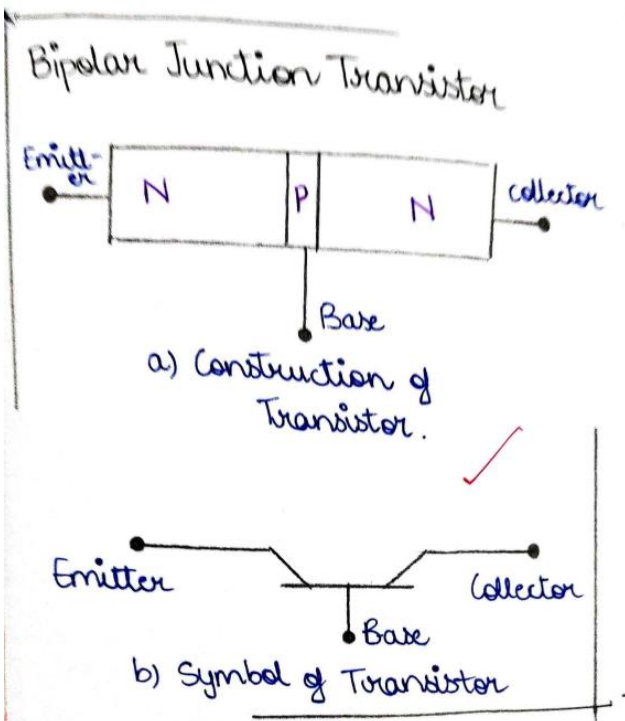 Bipolar Junction Transistor
Emitt-
er
N
P
N
Collector
Base
a) Construction of
Transistor.
Emitter
Collector
Base
b) Symbol of Transistor